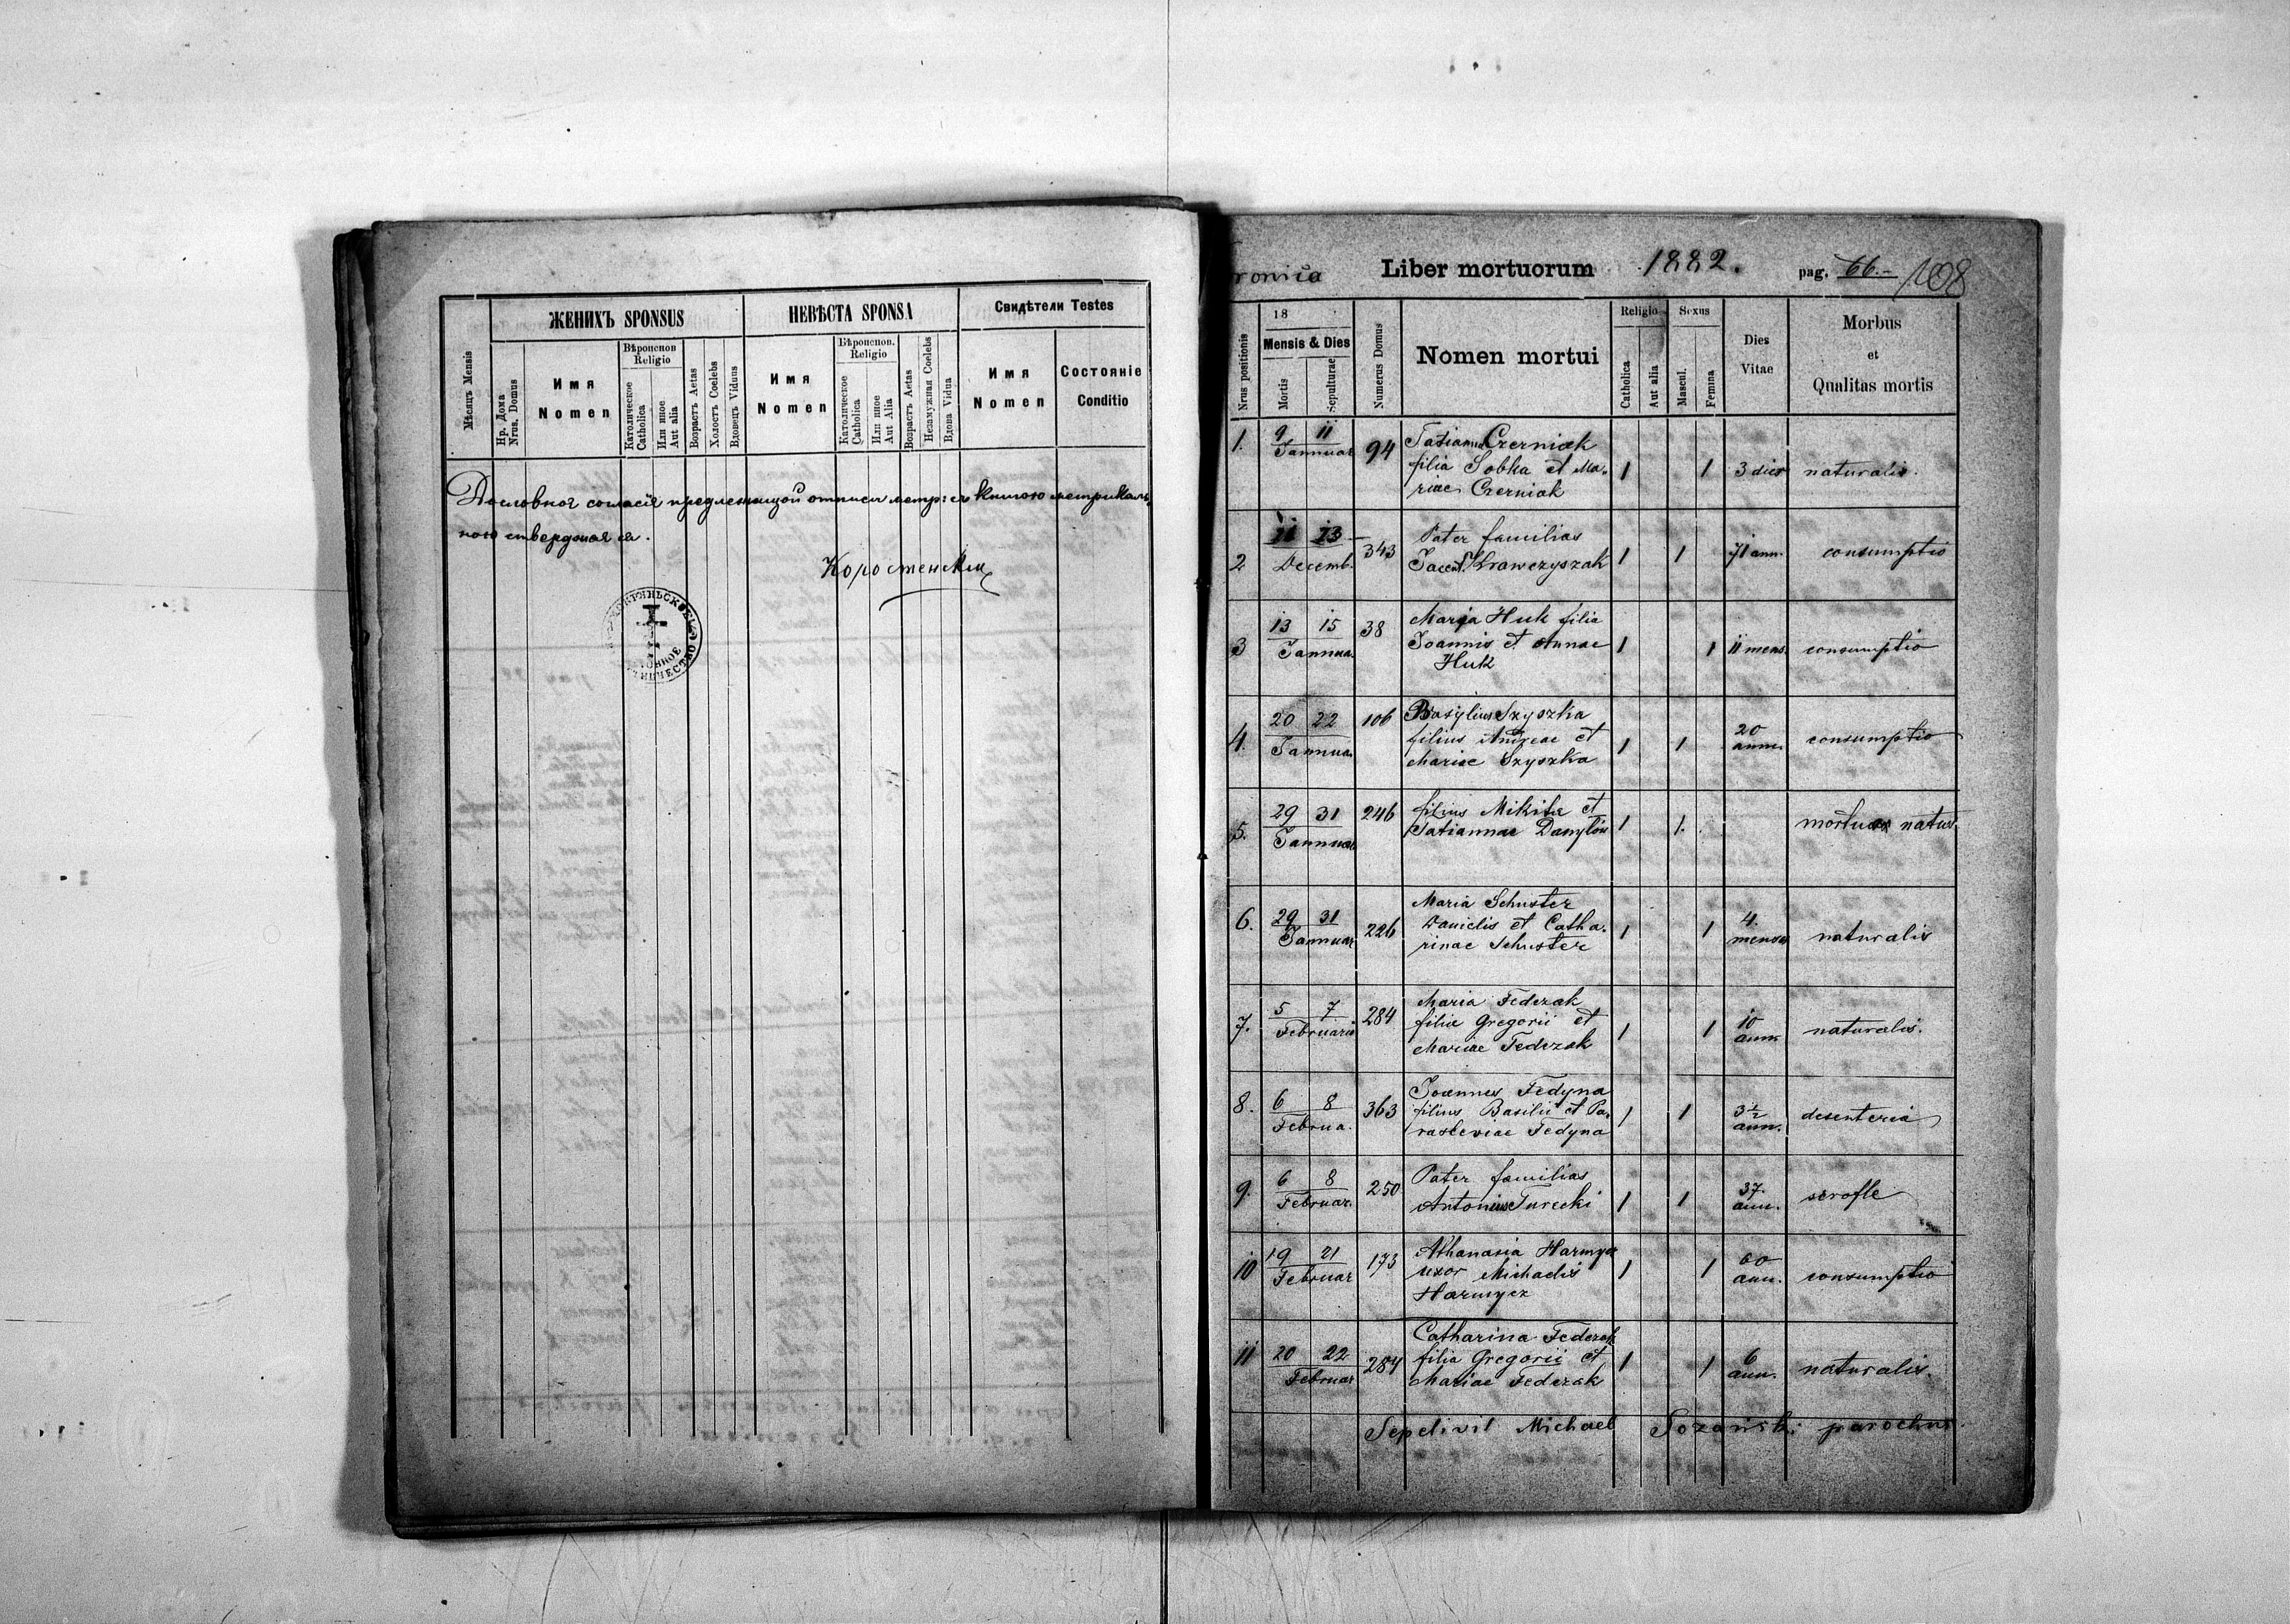 ЖЕНИХЪ SPONSUS
НЕВѢСТА SPONSA
Свидѣтели Testes
Мѣсяцъ Mensis
Нр. Дома
Nrus. Domus
Имя
Nomen
Вѣроиспов
Religio
Католическое
Catholica
Или иное
Aut alia
Возрастъ Aetas
Холостъ Coelebs
Вдовецъ Viduus
Имя
Nomen
Вѣроиспов.
Religio
Католическое
Catholica
Или иное
Aut Alia
Возрастъ Aetas
Незамужная Coelebs
Вдова Vidua
Имя
Nomen
Состоянiе
Conditio
метрикаль
ною стверджая ся.
ronica Liber mortuorum 1882. pag. 66.- 108
Nrus positionis
18
Mensis & Dies
Mortis
Sepulturae
Numerus Domus
Nomen mortui
Religio
Catholica
Aut alia
Sexus
Mascul.
Femina
Dies
Vitae
Morbus
et
Qualitas mortis
1. 9 11 Jannuar 94 Tatianna Czerniak
filia Sobka et Ma-
riae Czerniak 1 1 3 dies naturalis.
2 11 13 Decemb. 343 Pater familias
Jacent. Krawczyszak 1 1 71 ann. consumptio
3 13 15 Jannua. 38 Marja Huk filia
Joannis et Annae
Huk 1 1 11 mens. consumptio
4. 20 22 Jannua. 106 Basylius Szyszka
filius Andreae et
Mariae Szyszka 1 1 20 annu. consumptio
5. 29 31 Jannuar 246 filius Mikita et
Tatiannae Danylów 1 1. mortuus natus.
6. 29 31 Jannuar 226 Maria Schuster
Danielis et Catha-
rinae Schuster 1 1 4. menses naturalis
7. 5 7 Februarii 284 Maria Fedczak
filia Gregorii et
Mariae Fedczak 1 1 10 ann. naturalis.
8. 6 8 Februa. 363 Joannes Fedyna
filius Basilii et Pa-
rasceviae Fedyna 1 1 3 1/2 ann. desenteria
9. 6 8 Februar. 250 Pater familias
Antonius Turecki 1 1 37. ann. scrofle
10 19 21 Februar 173 Athanasia Harmycz
uxor Michaelis
Harmycz 1 1 60 ann. consumptio
11 20 22 Februar 284 Catharina Fedczak
filia Gregorii et
Mariae Fedczak 1 1 6 ann. naturalis.
Sepelivit Michael Sozański parochus.